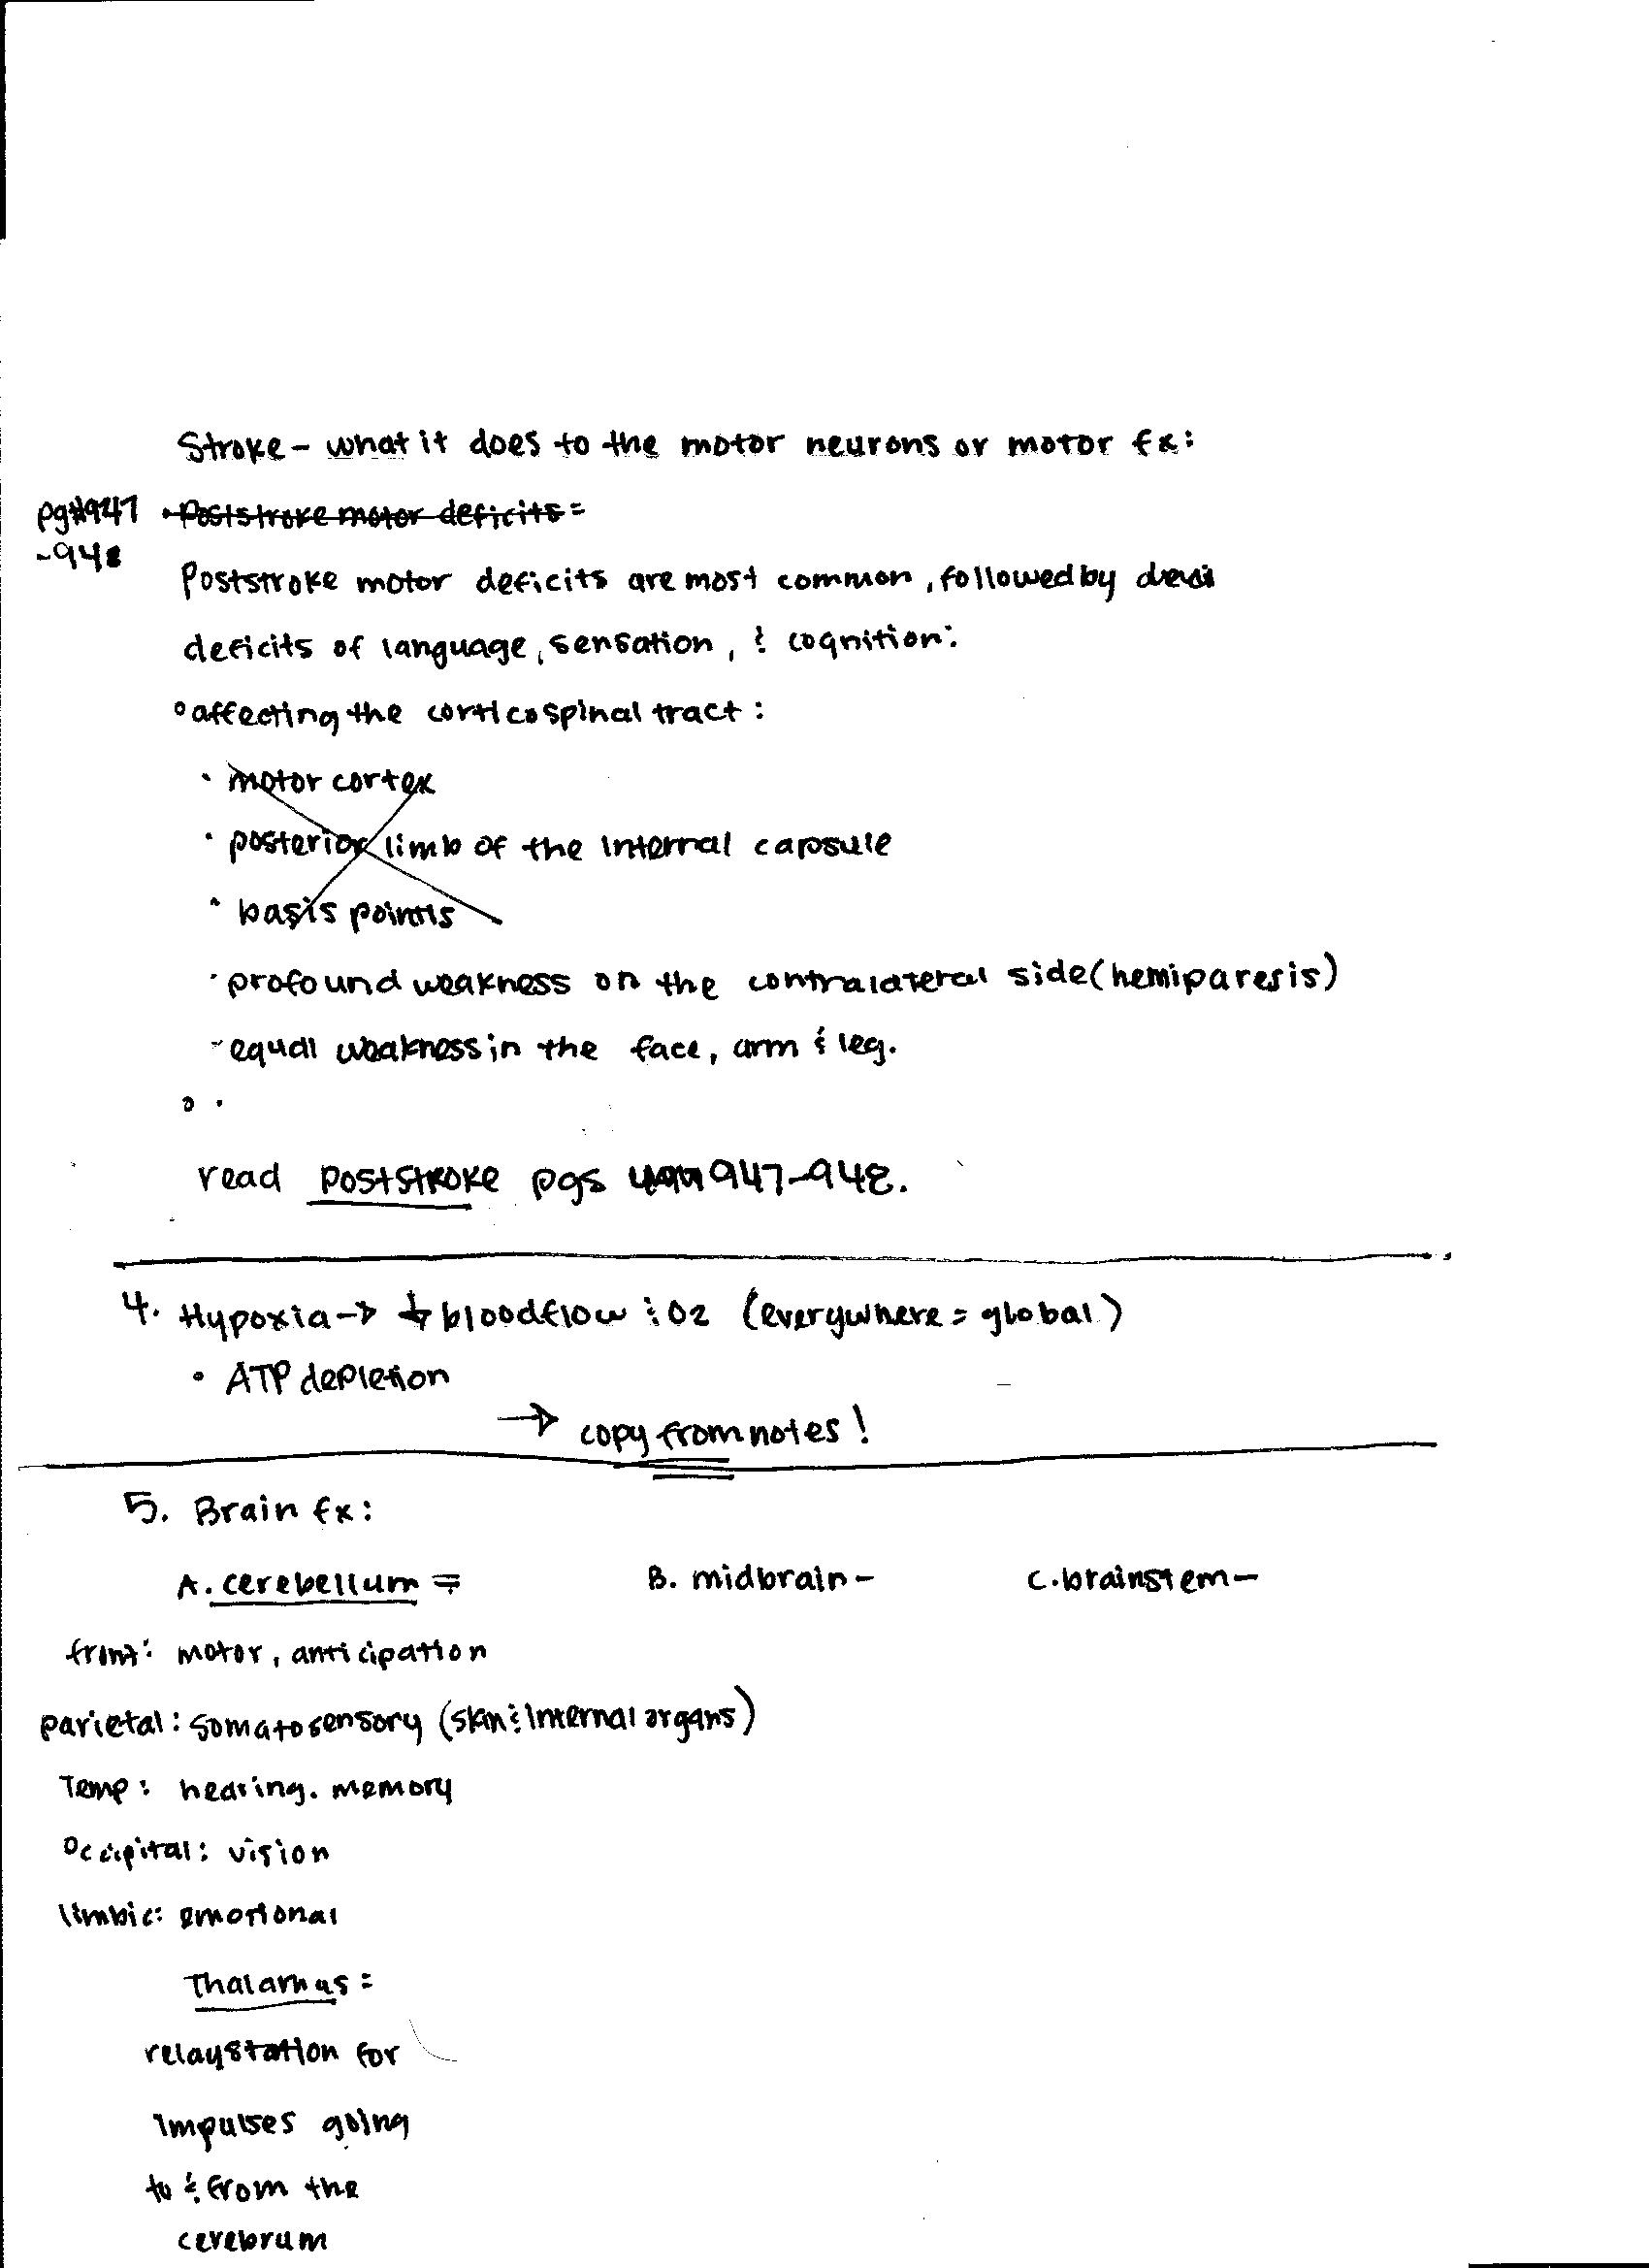 Stroke - what it does to the motor neurons or motor fx:
pg#947 • Poststroke motor deficits =
-948
Poststroke motor deficits are most common, followed by
deficits of language, sensation, & cognition:
° affecting the corticospinal tract:
• motor cortex
• posterior limb of the internal capsule
• basis pointis
• profound weakness on the contralateral side (hemiparesis)
- equal weakness in the face, arm & leg.
° •
read poststroke pgs 947-948.
4. Hypoxia → ↓ bloodflow & O2 (everywhere = global)
• ATP depletion
→ copy from notes!
5. Brain fx:
A. cerebellum = B. midbrain - C. brainstem -
front: motor, anticipation
parietal: somatosensory (skin & internal organs)
Temp: hearing. memory
Occipital: vision
limbic: emotional
Thalamus =
relaystation for
impulses going
to & from the
cerebrum